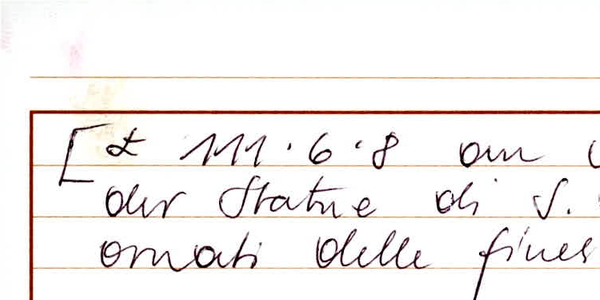 [£ 111.6.8 an
der Statue di S.
ornati delle fines